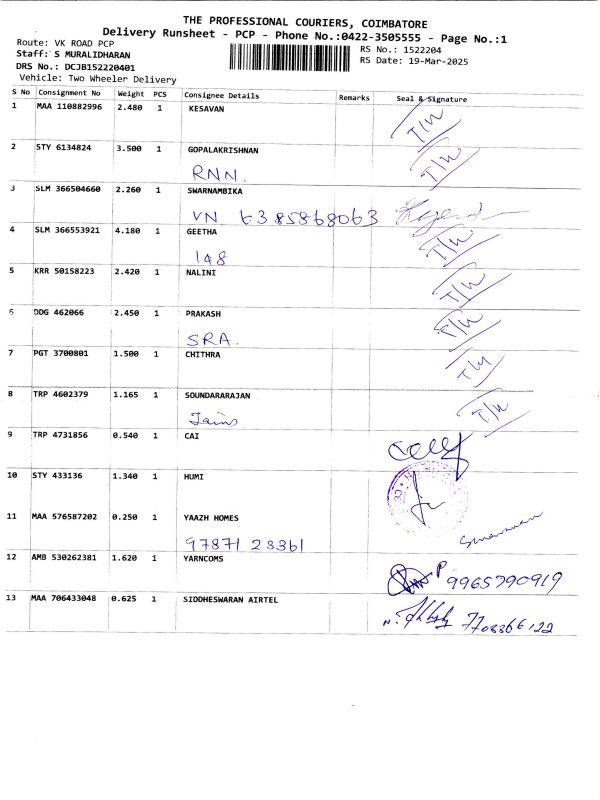 THE PROFESSIONAL COURIERS, COIMBATORE
Delivery Runsheet - PCP - Phone No.:0422-3505555 - Page No.:1
Route: VK ROAD PCP
RS No.: 1522204
Staff: S MURALIDHARAN
RS Date: 19-Mar-2025
DRS No.: DCJB152220401
Vehicle: Two Wheeler Delivery
S No Consignment No Weight PCS Consignee Details Remarks Seal & Signature
1 MAA 110882996 2.480 1 KESAVAN
T/W
2 STY 6134824 3.500 1 GOPALAKRISHNAN
T/W
RNN.
3 SLM 366504660 2.260 1 SWARNAMBIKA
VN 6385868063
4 SLM 366553921 4.180 1 GEETHA
T/W
148
5 KRR 50158223 2.420 1 NALINI
T/W
6 DDG 462066 2.450 1 PRAKASH
T/W
SRA.
7 PGT 3700801 1.500 1 CHITHRA
T/W
8 TRP 4602379 1.165 1 SOUNDARARAJAN
T/W
Jains
9 TRP 4731856 0.540 1 CAI
10 STY 433136 1.340 1 HUMI
11 MAA 576587202 0.250 1 YAAZH HOMES
97871 23361
12 AMB 530262381 1.620 1 YARNCOMS
9965790919
13 MAA 706433048 0.625 1 SIDDHESWARAN AIRTEL
7708366122